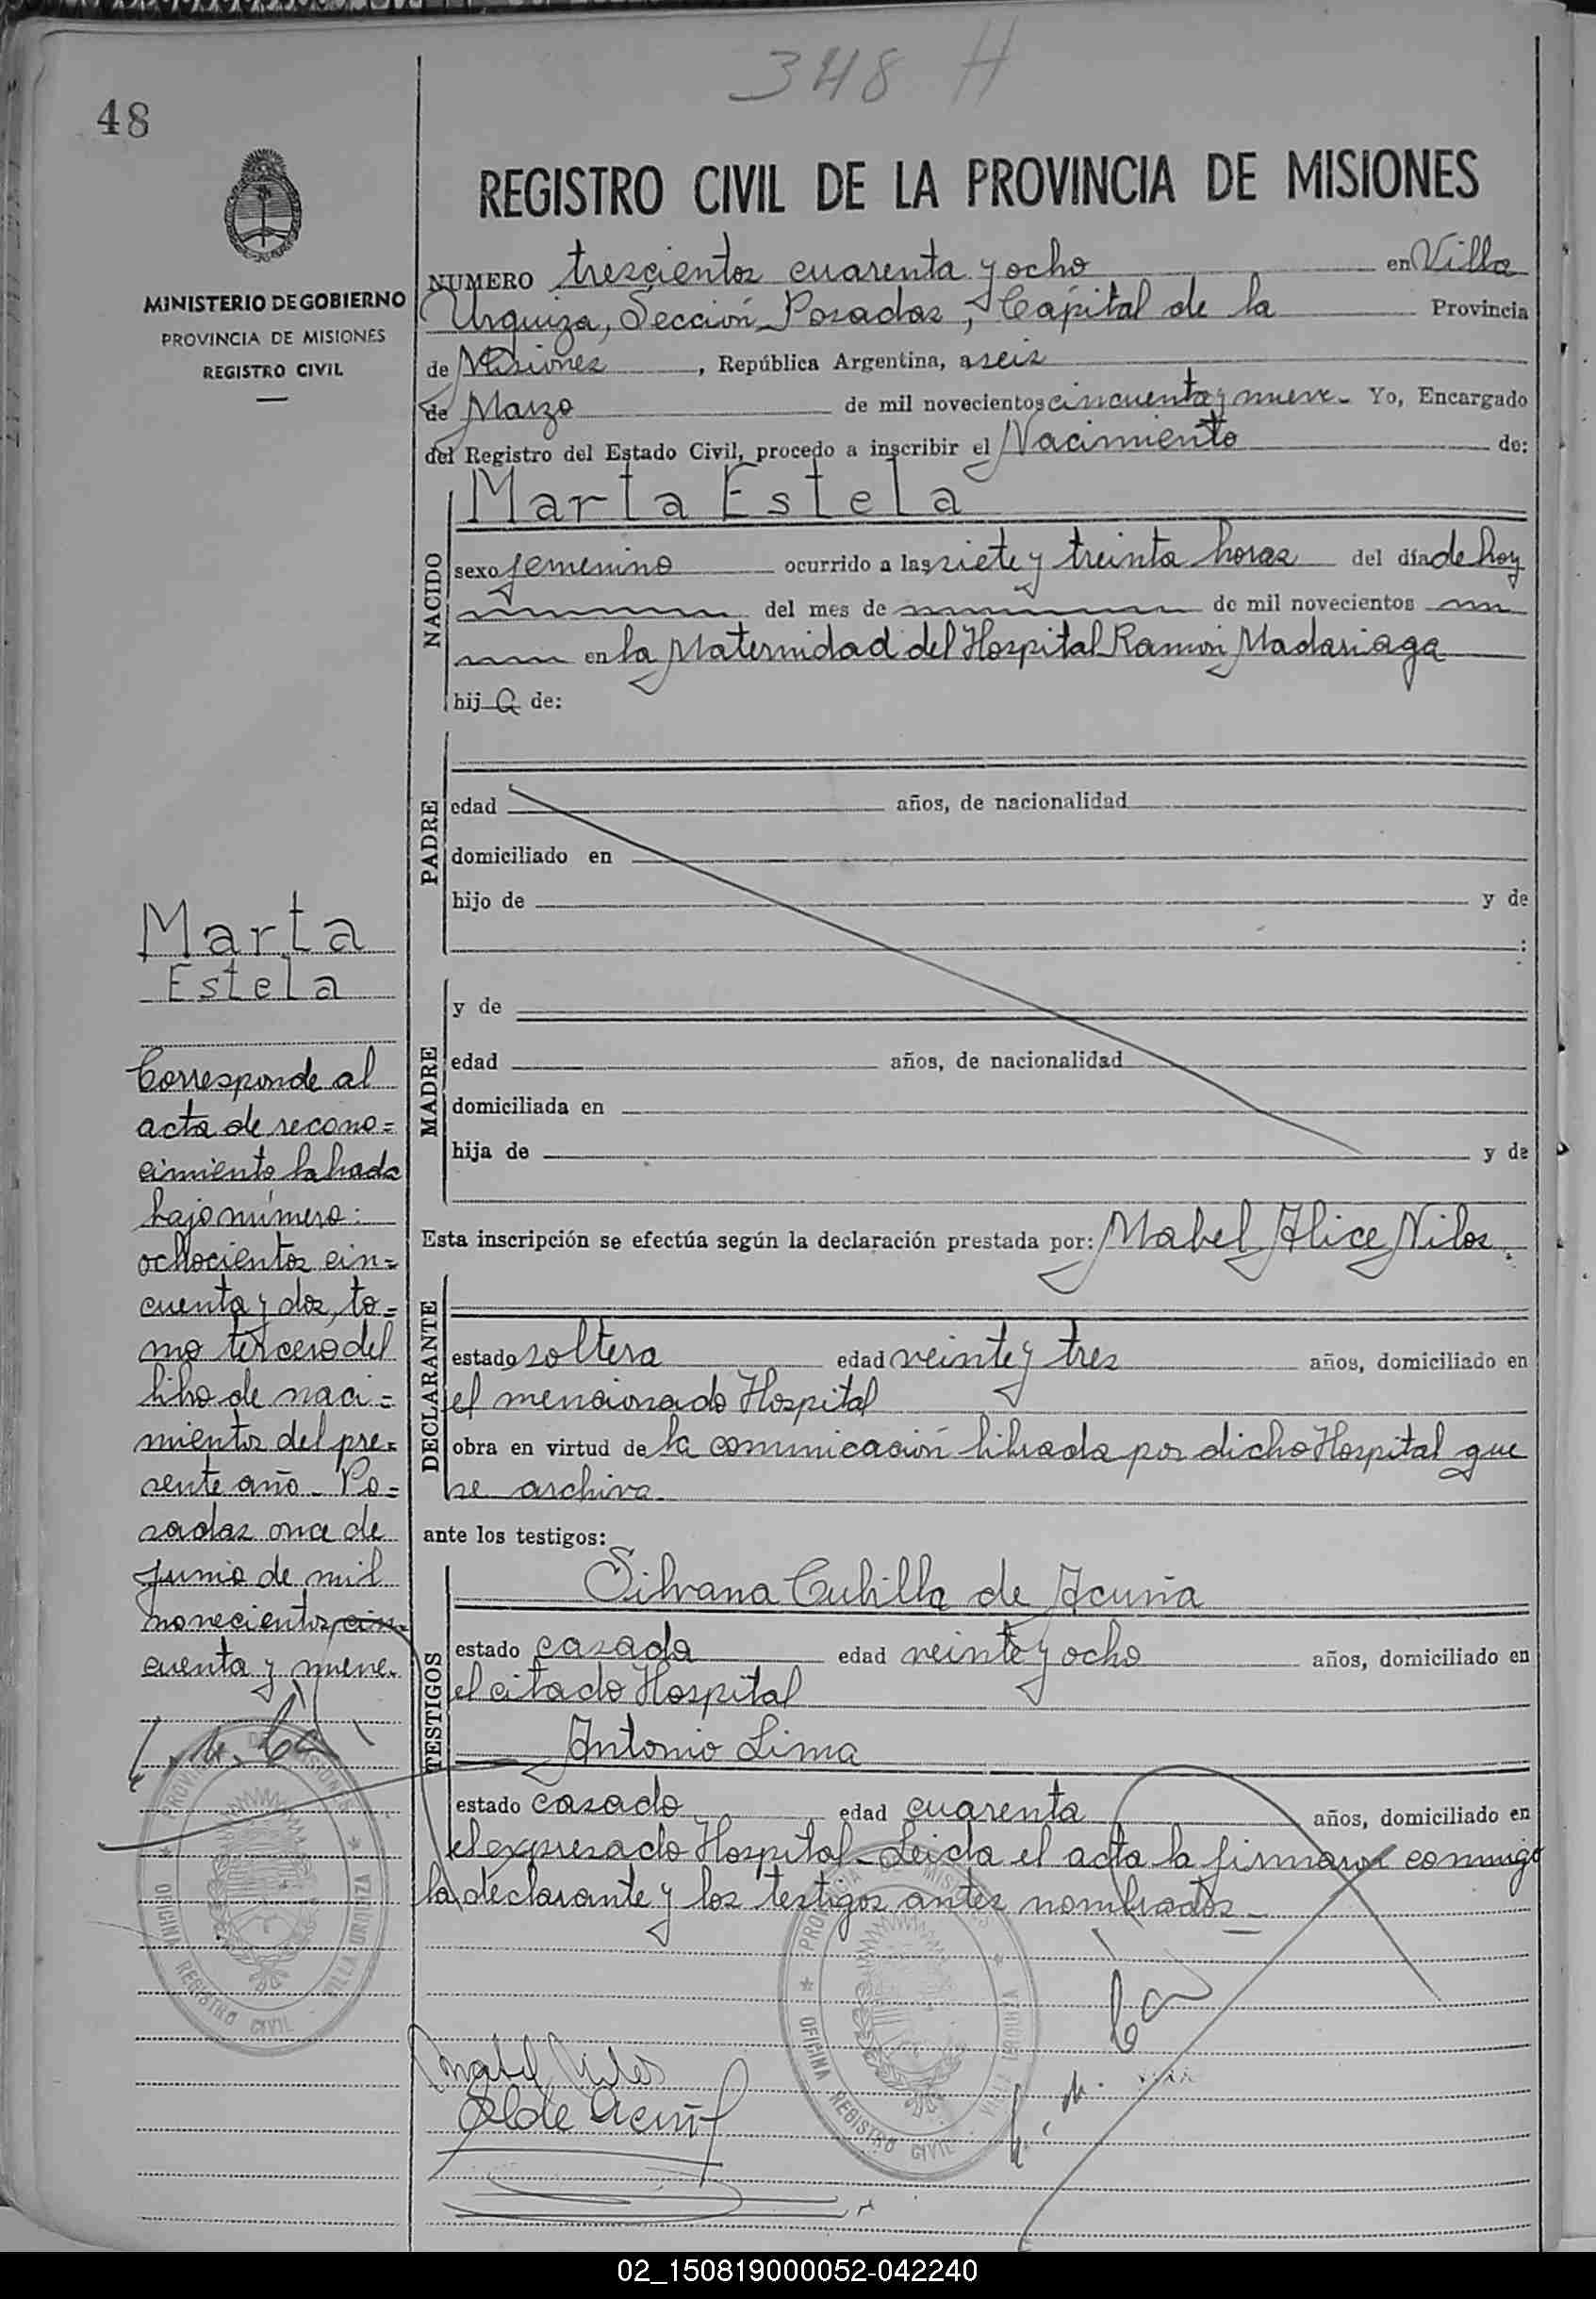 348 H
48
REGISTRO CIVIL DE LA PROVINCIA DE MISIONES
MINISTERIO DE GOBIERNO
PROVINCIA DE MISIONES
REGISTRO CIVIL
NUMERO trescientos cuarenta y ocho en Villa
Urquiza, Sección Posadas, Capital de la Provincia
de Misiones, República Argentina, a seis
de Marzo de mil novecientos cincuenta y nueve. Yo, Encargado
del Registro del Estado Civil, procedo a inscribir el Nacimiento de:
NACIDO
Marta Estela
sexo femenino ocurrido a las siete y treinta horas del día de hoy
del mes de de mil novecientos
en la Maternidad del Hospital Ramón Madariaga
hij a de:
PADRE
edad años, de nacionalidad
domiciliado en
hijo de y de
:
MADRE
y de
edad años, de nacionalidad
domiciliada en
hija de y de
Esta inscripción se efectúa según la declaración prestada por: Mabel Alice Nilos.
DECLARANTE
estado soltera edad veinte y tres años, domiciliado en
el mencionado Hospital
obra en virtud de la comunicación librada por dicho Hospital que
se archiva
ante los testigos:
TESTIGOS
Silvana Cubilla de Acuña
estado casada edad veinte y ocho años, domiciliado en
el citado Hospital
Antonio Lima
estado casado edad cuarenta años, domiciliado en
el expresado Hospital. Leida el acta la firmaron conmigo
la declarante y los testigos antes nombrados.
Marta
Estela
Corresponde al
acta de recono=
cimiento labrada
bajo número:
ochocientos cin=
cuenta y dos, to=
mo tercero del
libro de naci=
mientos del pre=
sente año. Po=
sadas once de
Junio de mil
novecientos cin
cuenta y nueve.
PROVINCIA DE MISIONES
OFICINA REGISTRO CIVIL VILLA URQUIZA
PROVINCIA DE MISIONES
OFICINA REGISTRO CIVIL VILLA URQUIZA
Mabel Nilos
de Acuña
02_150819000052-042240